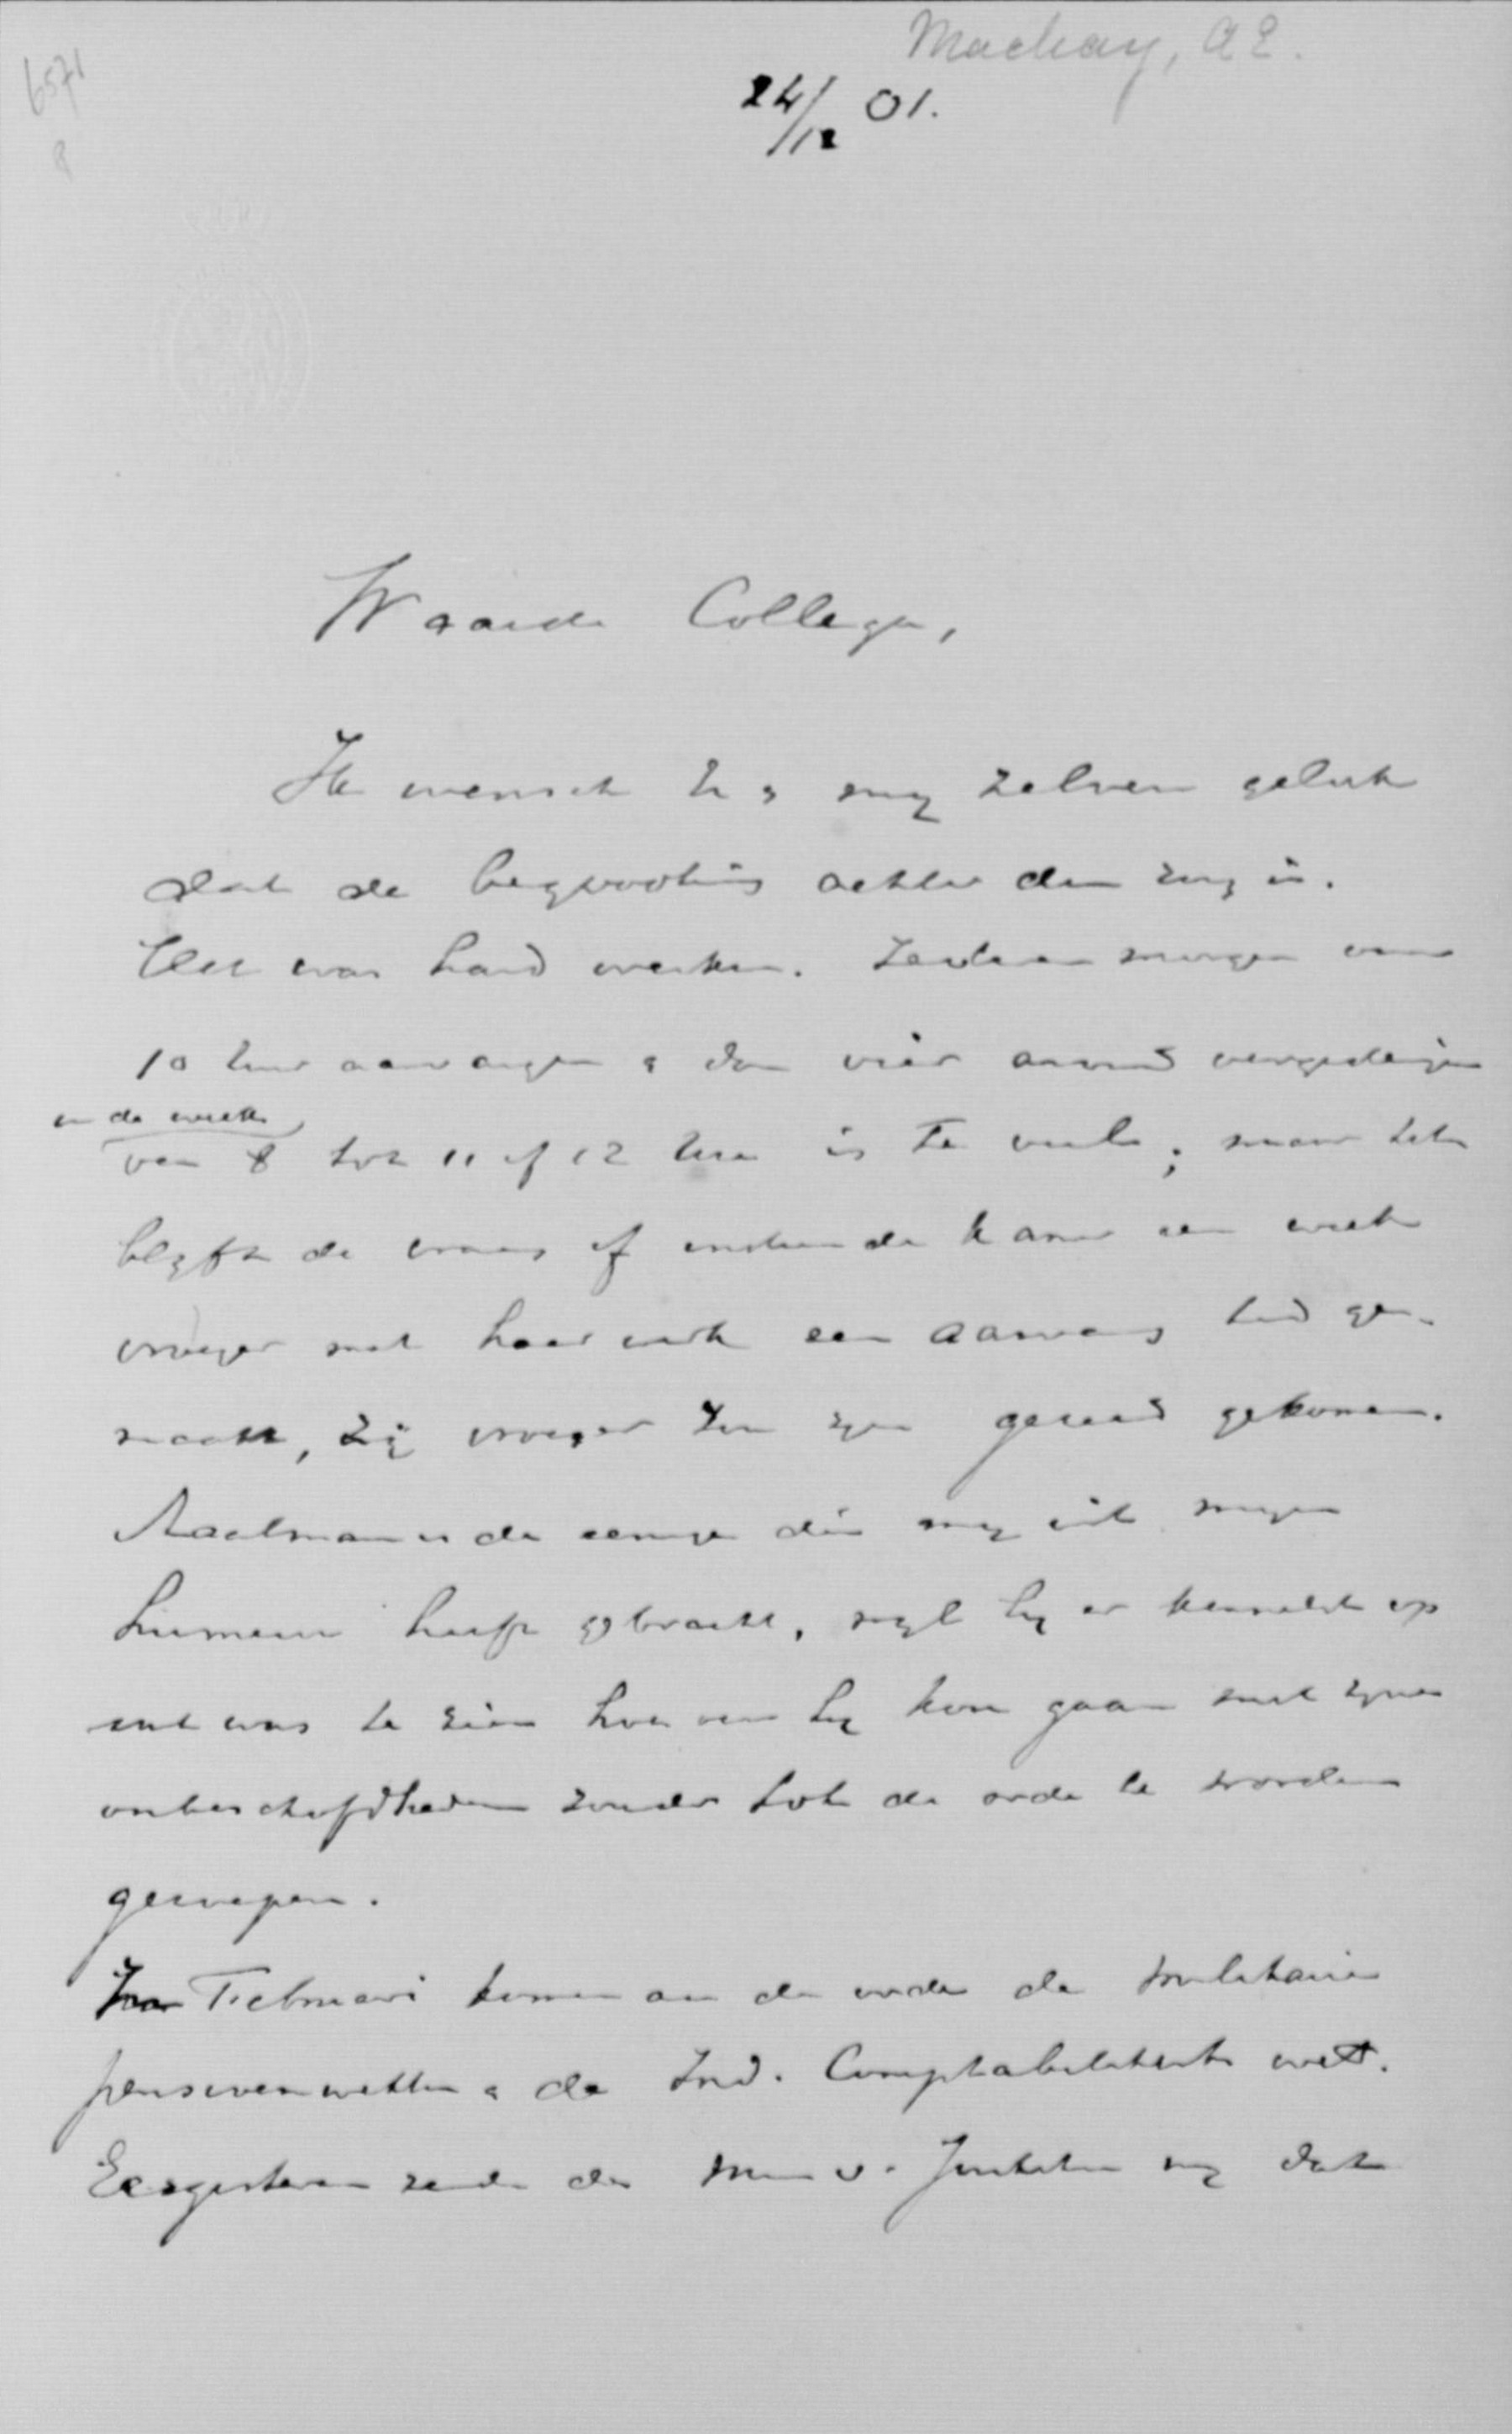 6571
8
Mackay, AE.
24/12 01.
Waarde Collega,
Ik wensch U & mij zelven geluk
dat de begrooting achter den rug is.
Het was hard werken. Iederen morgen om
10 uur aanvangen & dan vier avond vergaderingen
in de week
van 8 tot 11 of 12 uur is te veel; maar het
blyft de vraag of indien de kamer een week
vroeger met haar werk een aanvang had ge-
maakt, zij vroeger zou zyn gereed gekomen.
Staalman is de eenige die my uit myn
humeur heeft gebracht, wyl hy er kennelyk op
uit was te zien hoe ver hy kon gaan met zyne
onbeschofdheden zonder tot de orde te worden
geroepen.
Voor Febmari komen aan de orde de militaire
pensioenwetten & de Ind. Comptabiliteits wet.
Eergisteren zeide de Min v. Justitie my dat